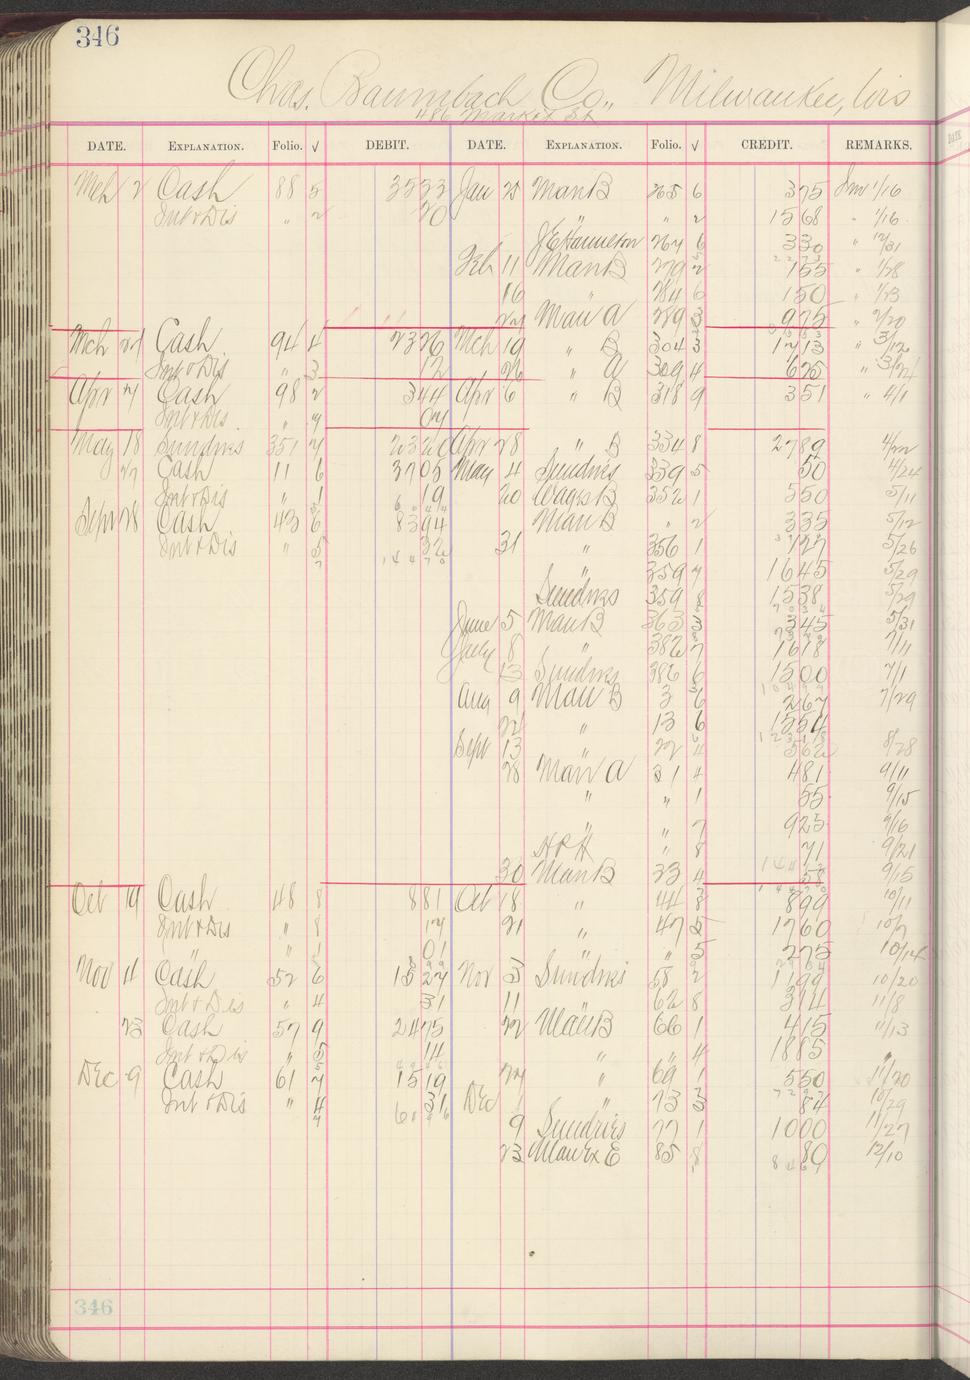 346
Chas. Baumbach Co., Milwaukee, Wis
486 Market St
DATE. EXPLANATION. Folio. √ DEBIT. DATE. EXPLANATION. Folio. √ CREDIT. REMARKS.
Mch 2 Cash 88 5 3533 Jan 25 Man B 265 6 375 Inv 1/16
Int & Dis " 2 70 " 2 1568 " 1/16
J E Hamilton 264 6 330 " 12/31
Feb 11 Man B 279 2 155 " 1/28
16 " 284 6 150 " 1/23
24 Man A 289 3 975 " 2/20
Mch 24 Cash 94 4 2326 Mch 19 " B 304 3 1713 " 3/12
Int & Dis " 3 12 26 " A 309 4 625 " 3/21
Apr 7 Cash 98 2 344 Apr 6 " B 318 9 351 " 4/1
Int & Dis " 9 07
May 18 Sundries 351 7 2320 Apr 28 " B 334 8 2789 4/22
27 Cash 11 6 3705 May 4 Sundries 339 5 50 4/24
Int & Dis " 1 19 20 Wages B 352 1 550 5/11
Sept 28 Cash 43 6 8394 Man B " 2 335 5/12
Int & Dis " 5 32 31 " 356 1 127 5/26
" 359 7 1645 5/29
Sundries 359 8 1538 5/29
June 5 Man B 363 3 345 5/31
July 8 " 382 7 1618 7/1
13 Sundries 386 6 1500 7/1
Aug 9 Man B 3 6 267 7/29
24 " 13 6 1554
Sept 13 " 22 4 562 8/28
28 Man A 31 4 481 9/11
" " 1 55 9/15
" " 7 925 9/16
H P H " 8 71 9/21
30 Man B 33 4 58 9/15
Oct 19 Cash 48 8 881 Oct 18 " 44 8 899 10/11
Int & Dis " 8 17 21 " 47 5 1760 10/7
" " 1 01 " 5 275 10/14
Nov 4 Cash 52 6 1527 Nov 5 Sundries 58 2 1199 10/20
Int & Dis " 4 31 11 " 62 8 314 11/8
23 Cash 57 9 2475 22 Man B 66 1 415 11/13
Int & Dis " 5 14 " " 4 1885 "
Dec 9 Cash 61 7 1519 24 " 69 1 550 11/20
Int & Dis " 4 31 Dec 1 " 73 3 84 10/29
9 Sundries 77 1 1000 11/27
23 Man Ex E 85 8 80 12/10
346